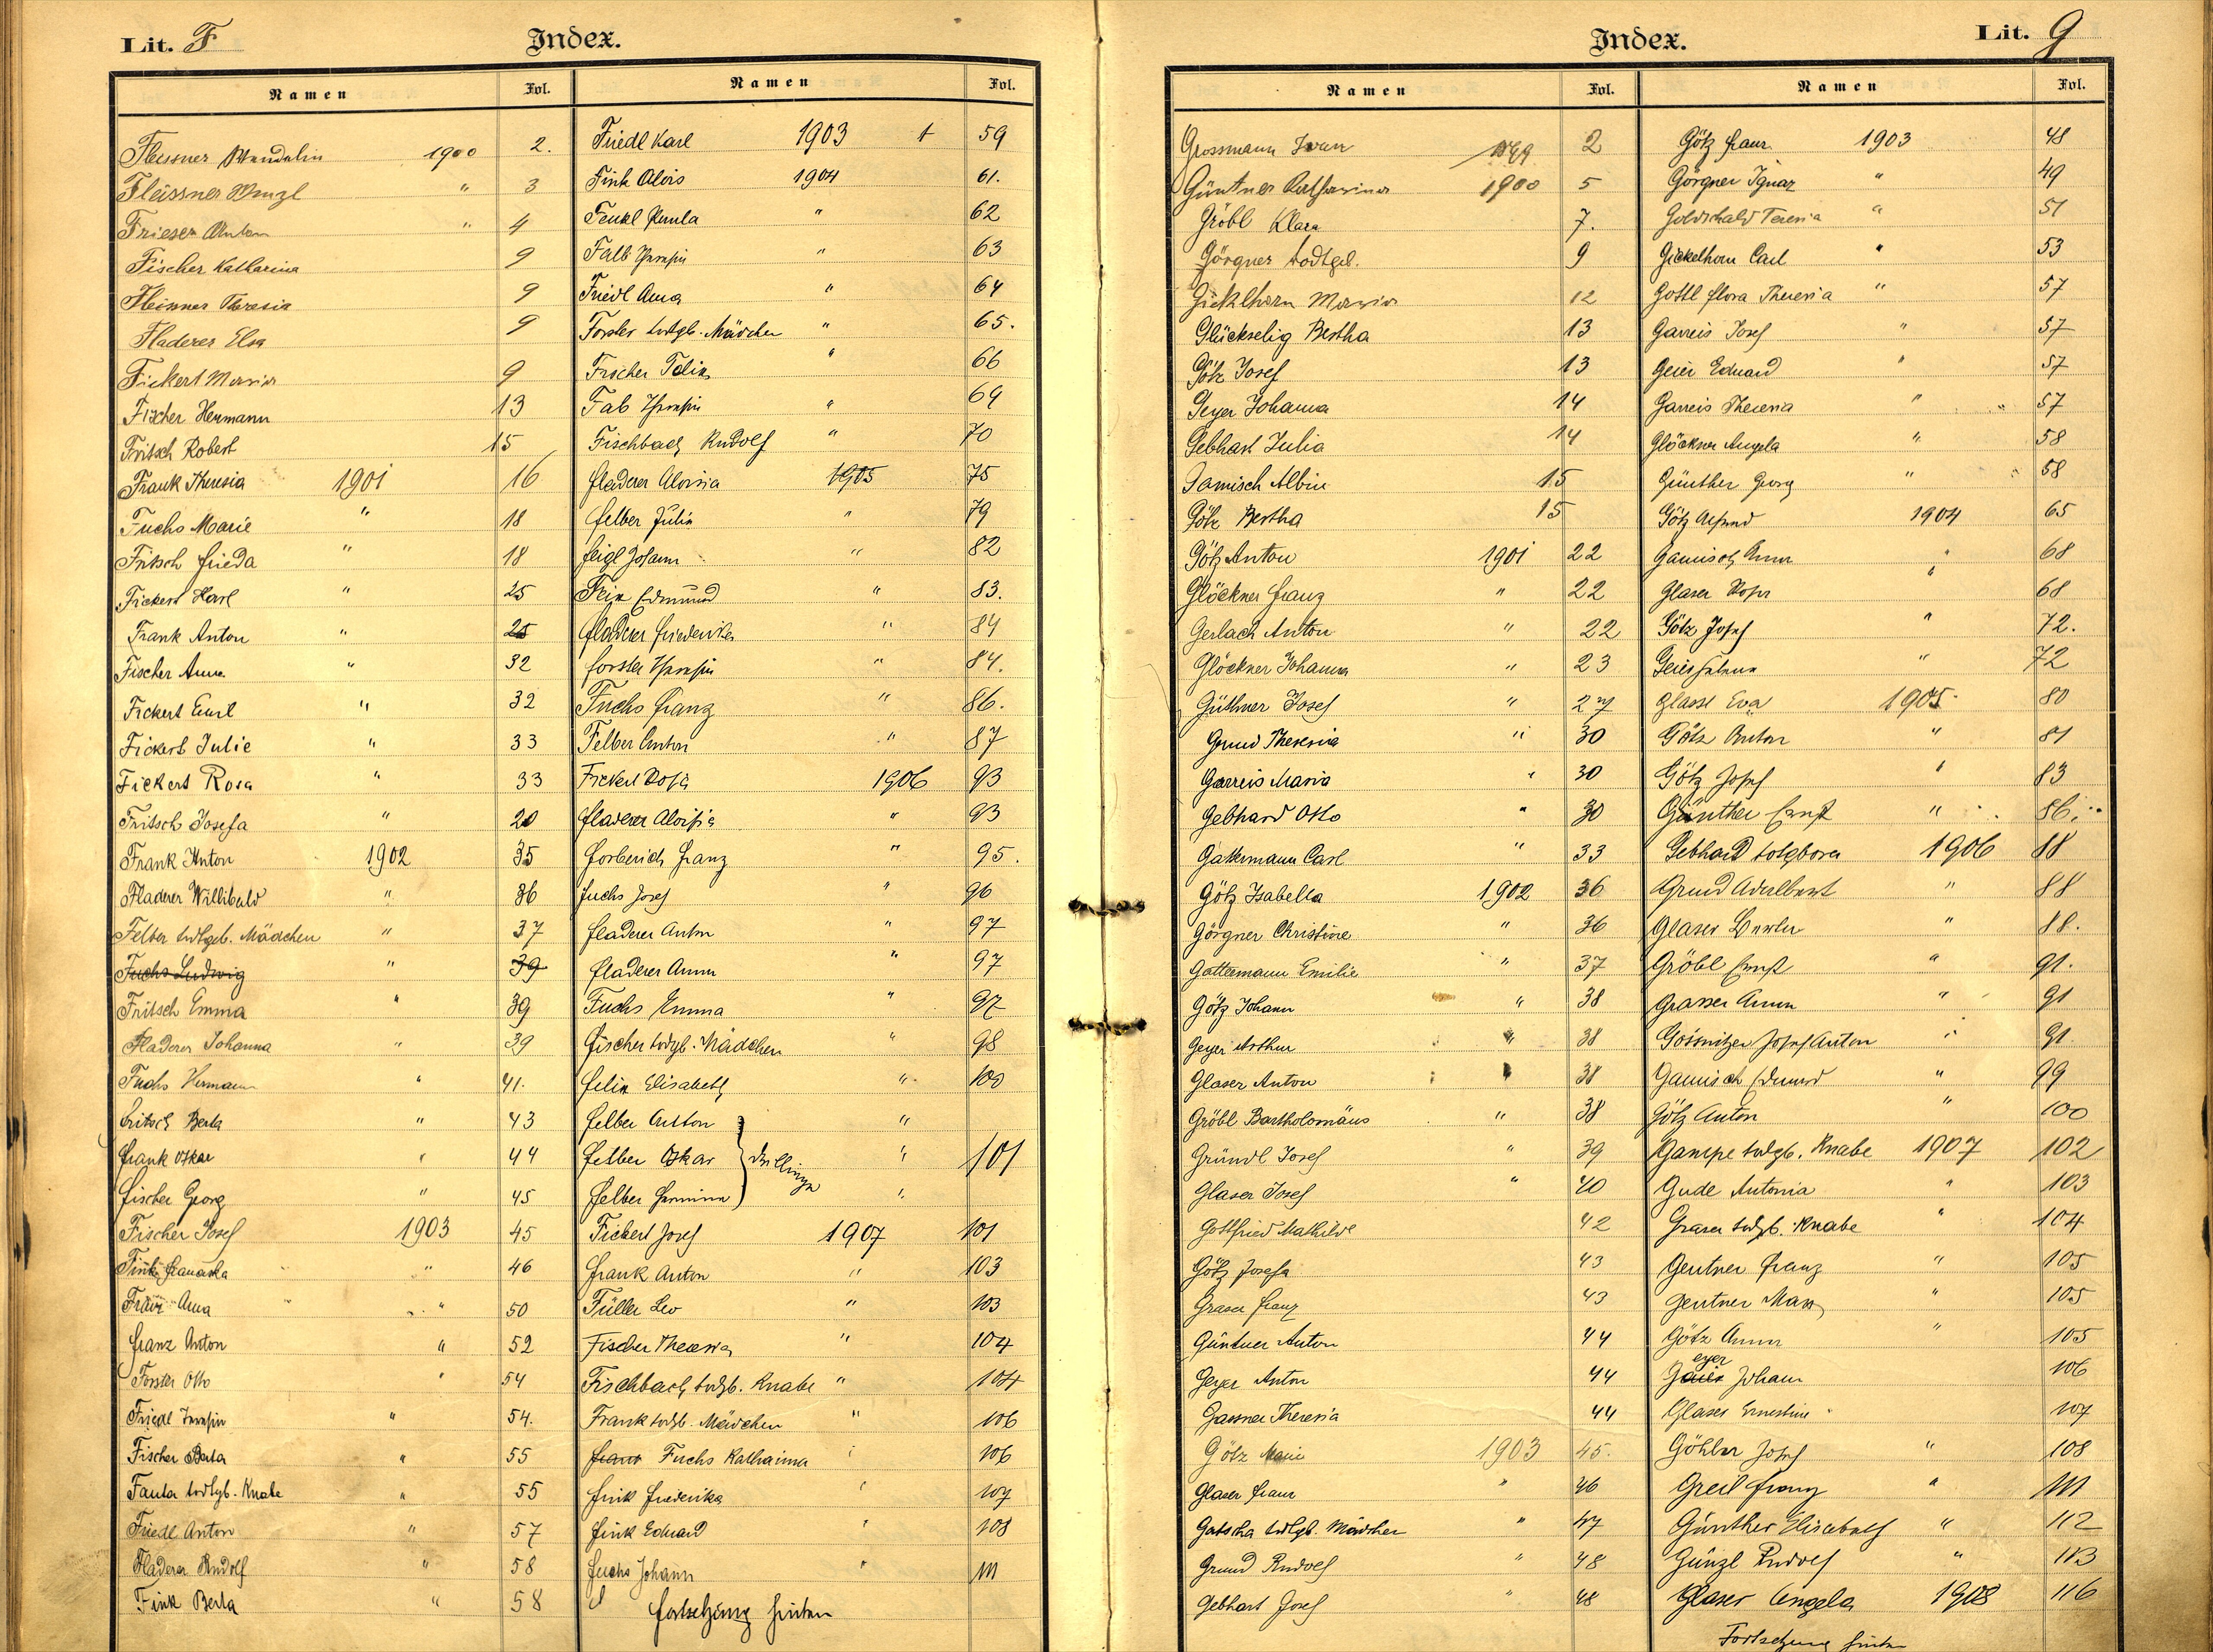 Lit. F
Index.
Namen Fol.
Fleissner Wendelin 1900 2.
Fleissner Wenzl " 3
Frieser Anton " 4
Fischer Katharina 9
Fleissner Theresia 9
Fladerer Elsa 9
Fickert Maria 9
Fischer Hermann 13
Fritsch Robert 15
Frank Theresia 1901 16
Fuchs Marie " 18
Fritsch Frieda " 18
Fickert Karl " 25
Frank Anton " 25
Fischer Anna " 32
Fickert Emil " 32
Fickert Julie " 33
Fickert Rosa " 33
Fritsch Josefa " 20
Frank Anton 1902 35
Fladerer Willibald " 36
Felber todtgeb. Mädchen " 37
Fuchs Ludwig " 39
Fritsch Emma " 39
Fladerer Johanna " 39
Fuchs Hermann " 41.
Fritsch Berta " 43
Frank Oskar " 44
Fischer Georg " 45
Fischer Josef 1903 45
Fink Franziska " 46
Anna " 50
Franz Anton " 52
Forster Otto " 54
Friedl Josefin " 54.
Fischer Berta " 55
Fanta todtgb. Knabe " 55
Friedl Anton " 57
Fladerer Rudolf " 58
Fink Berta " 58
Namen Fol.
Friedl Karl 1903 † 59
Fink Alois 1904 61.
Paula " 62
Falb Josefin " 63
Friedl Anna " 64
Forster todtgb. Mädchen " 65.
Fischer Felix " 66
Fab Josefin " 69
Fischbach Rudolf " 70
Fladerer Aloisia 1905 75
Felber Julia " 79
Feigl Johann " 82
Feix Edmund " 83.
Fladerer Friederika " 84
Forster Josefin " 84.
Fuchs Franz " 86.
Felber Anton " 87
Fickert Rosa 1906 93
Fladerer Aloisia " 93
Forberich Franz " 95.
Fuchs Josef " 96
Fladerer Anton " 97
Fladerer Anna " 97
Fuchs Emma " 97
Fischer todtgb. Mädchen " 98
Felix Elisabeth " 100
Felber Anton "
Felber Oskar " Drillinge 101
Felber Hermina "
Fickert Josef 1907 101
Frank Anton " 103
Füller Leo " 103
Fischer Theresia " 104
Fischbach todtgb. Knabe " 104
Frank todtgb. Mädchen " 106
Franz Fuchs Katharina " 106
Fink Frederika " 107
Fink Eduard " 108
Fuchs Johann " 111
Fortsetzung hinten
Index.
Lit. G
Namen Fol.
Grossmann Ivan 1899 2
Güntner Katharina 1900 5
Gröbl Klara 7.
Görgner todtgeb. 9
Gicklhorn Maria 12
Glückselig Bertha 13
Götz Josef 13
Geyer Johanna 14
Gebhart Julia 14
Gamisch Albin 15
Götz Bertha 15
Götz Anton 1901 22
Glöckner Franz " 22
Gerlach Anton " 22
Glöckner Johanna " 23
Güthner Josef " 27
Grund Theresia " 30
Garreis Maria " 30
Gebhard Otto " 30
Gattermann Carl " 33
Götz Isabella 1902 36
Görgner Christine " 36
Gattermann Emilie " 37
Götz Johann " 38
Geyer Arthur " 38
Glaser Anton " 38
Gröbl Bartholomäus " 38
Gründl Josef " 39
Glaser Josef " 40
Gottfried Mathilde 42
Götz Josefa 43
Grasser Franz 43
Güntner Anton 44
Geyer Anton 44
Gassner Theresia 44
Götz Marie 1903 45.
Glaser Franz " 46
Gatscha todtgb. Mädchen " 47
Grund Rudolf " 48
Gebhart Josef " 48
Namen Fol.
Götz Franz 1903 48
Görgner Ignaz " 49
Goldschald Teresia " 51
Gickelhorn Carl " 53
Gottl Flora Theresia " 57
Garreis Josef " 57
Geier Eduard " 57
Garreis Theresia " 57
Glöckner Angela " 58
Günther Georg " 58
Götz 1904 65
Gamisch Anna " 68
Glaser Rosa " 68
Götz Josef " 72.
Geier " 72
Glassl Eva 1905 80
Götz Anton " 81
Götz Josef " 83
Günther Ernst " 86.
Gebhard todtgboren 1906 88
Grund Adalbert " 88
Glaser " 88.
Gröbl Ernst " 91.
Grasser Anna " 91
Gössnitzer Josef Anton " 91.
Gamisch Edmund " 99
Götz Anton " 100
Gampe todtgb. Knabe 1907 102
Gude Antonia " 103
Graser todtgb. Knabe " 104
Gentner Franz " 105
Gentner Max " 105
Götz Anna " 105
eyer
Gaier Johann 106
Glaser Ernestine " 107
Göhlber Josef " 108
Greil Franz " 111
Günther Elisabeth " 112
Günzl Rudolf " 113
Glaser Angela 1908 116
Fortsetzung hinten